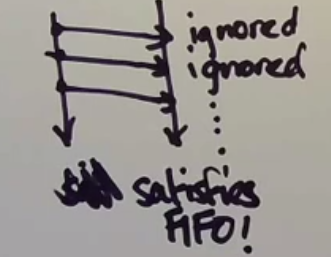 ignored
ignored
satisfies
FIFO!